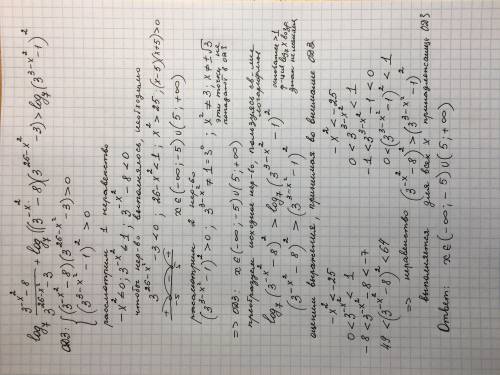 log₇ (3^(-x²) - 8)/(3^(26-x²) - 3) + log₇ ((3^(-x²) - 8)(3^(26-x²) - 3)) > log₇ (3^(3-x²) - 1)²
ОДЗ: { (3^(-x²) - 8)(3^(26-x²) - 3) > 0
(3^(3-x²) - 1)² > 0
рассмотрим 1 неравенство
чтобы нер-во выполнялось, необходимо
-x² ≠ 0; 3^(-x²) ≤ 1; 3^(-x²) - 8 < 0
3^(26-x²) - 3 < 0; 26-x² < 1; x² > 25; (x-5)(x+5) > 0
+ -5 - 5 +
x ∈ (-∞; -5) ∪ (5; +∞)
рассмотрим 2 нер-во
(3^(3-x²) - 1)² > 0; 3^(3-x²) ≠ 1 = 3⁰; x² ≠ 3; x ≠ ±√3
эти точки не попадают в ОДЗ
=> ОДЗ: x ∈ (-∞; -5) ∪ (5; +∞)
преобразуем исходное нер-во, пользуясь св-ми логарифмов
log₇ (3^(-x²) - 8)² > log₇ (3^(3-x²) - 1)²
основание > 1
ф-ция log₇ x возр.
знак не меняем
(3^(-x²) - 8)² > (3^(3-x²) - 1)²
оценим выражения, принимая во внимание ОДЗ.
-x² < -25
0 < 3^(-x²) < 1
-8 < 3^(-x²) - 8 < -7
49 < (3^(-x²) - 8)² < 64
-x² < -25
0 < 3^(3-x²) < 1
-1 < 3^(3-x²) - 1 < 0
0 < (3^(3-x²) - 1)² < 1
=> неравенство (3^(-x²) - 8)² > (3^(3-x²) - 1)²
выполняется для всех x принадлежащих ОДЗ
Ответ: x ∈ (-∞; -5) ∪ (5; +∞)